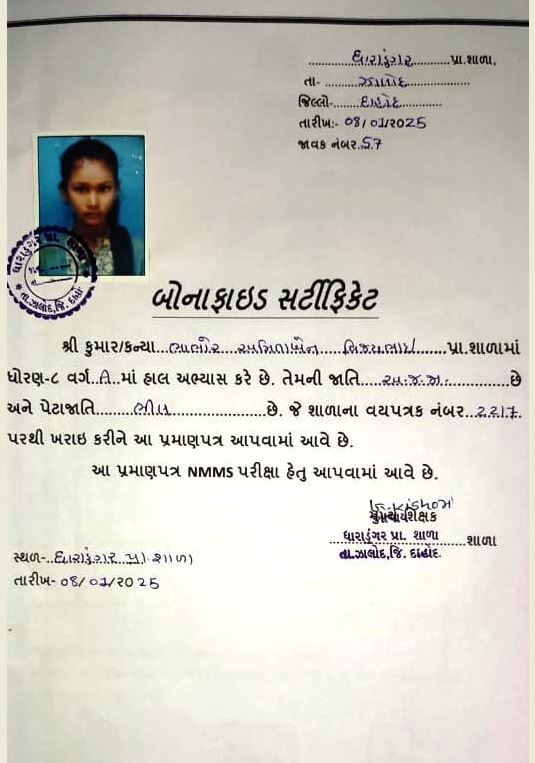 ધારાડુંગર પ્રા.શાળા,
તા- ઝાલોદ
જિલ્લો- દાહોદ
તારીખ:- 08/01/2025
જાવક નંબર. 57
ધારાડુંગર પ્રા. શાળા
તા.ઝાલોદ, જિ. દાહોદ
બોનાફાઇડ સર્ટીફિકેટ
શ્રી કુમાર/કન્યા ભાભોર અમિતાબેન વિજયભાઇ પ્રા.શાળામાં
ધોરણ-૮ વર્ગ A માં હાલ અભ્યાસ કરે છે. તેમની જાતિ અ.જ.જા. છે
અને પેટાજાતિ ભીલ છે. જે શાળાના વયપત્રક નંબર 2217
પરથી ખરાઇ કરીને આ પ્રમાણપત્ર આપવામાં આવે છે.
આ પ્રમાણપત્ર NMMS પરીક્ષા હેતુ આપવામાં આવે છે.
ધારાડુંગર પ્રા. શાળા શાળા
તા.ઝાલોદ,જિ. દાહોદ.
સ્થળ- ધારાડુંગર પ્રા. શાળા
તારીખ- 08/01/2025